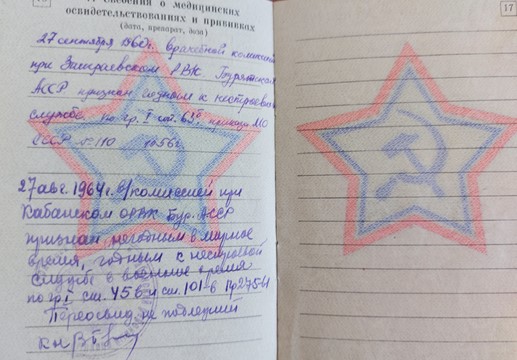 сведения о медицинских
освидетельствованиях и прививках
(дата, препарат, доза)
17
27 сентября 1960г. врачебной комиссией
при Заиграевском РВК Бурятской
АССР признан годным к нестроевой
службе по гр. I ст. 63 приказа МО
СССР № 110 1956г.
27 авг. 1964 г. в/комиссией при
Кабанском ОРВК Бур. АССР
признан негодным в мирное
время, годным к нестроевой
службе в военное время
по гр. I ст. 45б и ст. 101-в пр 275-61
Переосвид. не подлежит